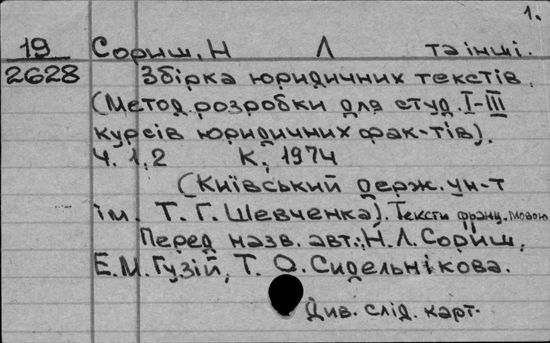 1.
19 Сориш, Н Л та інші.
2628 Збірка юридичних текстів.
(Метод. розробки для студ. I-III
курсів юридичних фак-тів).
Ч. 1, 2 К., 1974
(Київський держ. ун-т
ім. Т. Г. Шевченка). Тексти франц. мовою
Перед назв. авт.: Н. Л. Сориш,
Е. М. Гузій, Т. О. Сидельнікова.
Див. слід. карт.